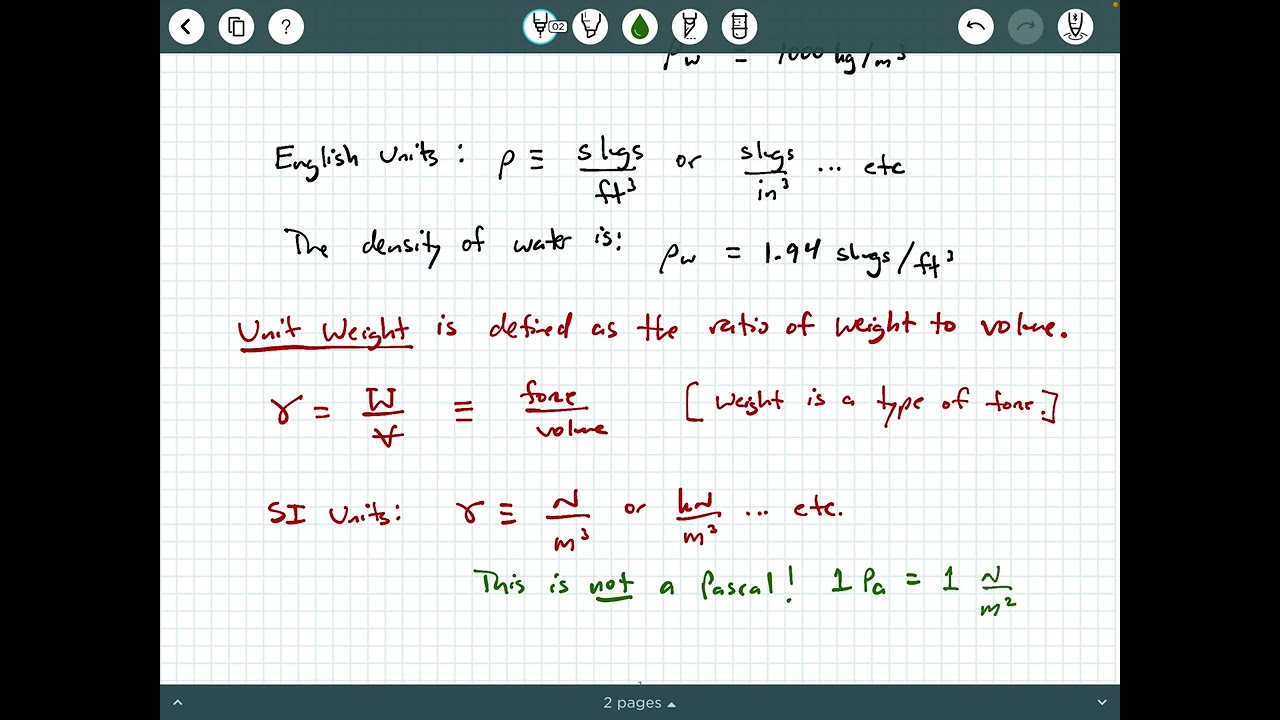 ?
02
ρw = 1000 kg/m³
English Units: ρ ≡ slugs/ft³ or slugs/in³ ... etc
The density of water is: ρw = 1.94 slugs/ft³
Unit Weight is defined as the ratio of weight to volume.
γ = W/V ≡ force/volume [Weight is a type of force.]
SI Units: γ ≡ N/m³ or kN/m³ ... etc.
This is not a Pascal! 1 Pa = 1 N/m²
2 pages